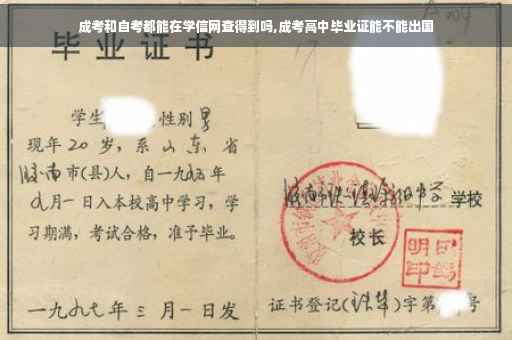 成考和自考都能在学信网查得到吗,成考高中毕业证能不能出国
毕业证书
学生 性别男
现年20岁,系山东省
济南市(县)人,自一九九五年
九月一日入本校高中学习,学
习期满,考试合格,准予毕业。
一九九七年三月一日发
济南市 中学 学校
校长
明 印
证书登记( )字第 号